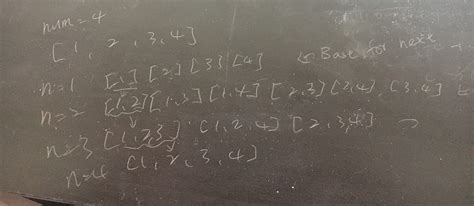 num = 4
[1, 2, 3, 4]
n=1 [1,] [2,] [3] [4] ← Base for next
n=2 [1,2] [1,3] [1,4] [2,3] [2,4], [3,4] ←
n=3 [1,2,3] [1,2,4] [2,3,4]
n=4 [1,2,3,4]